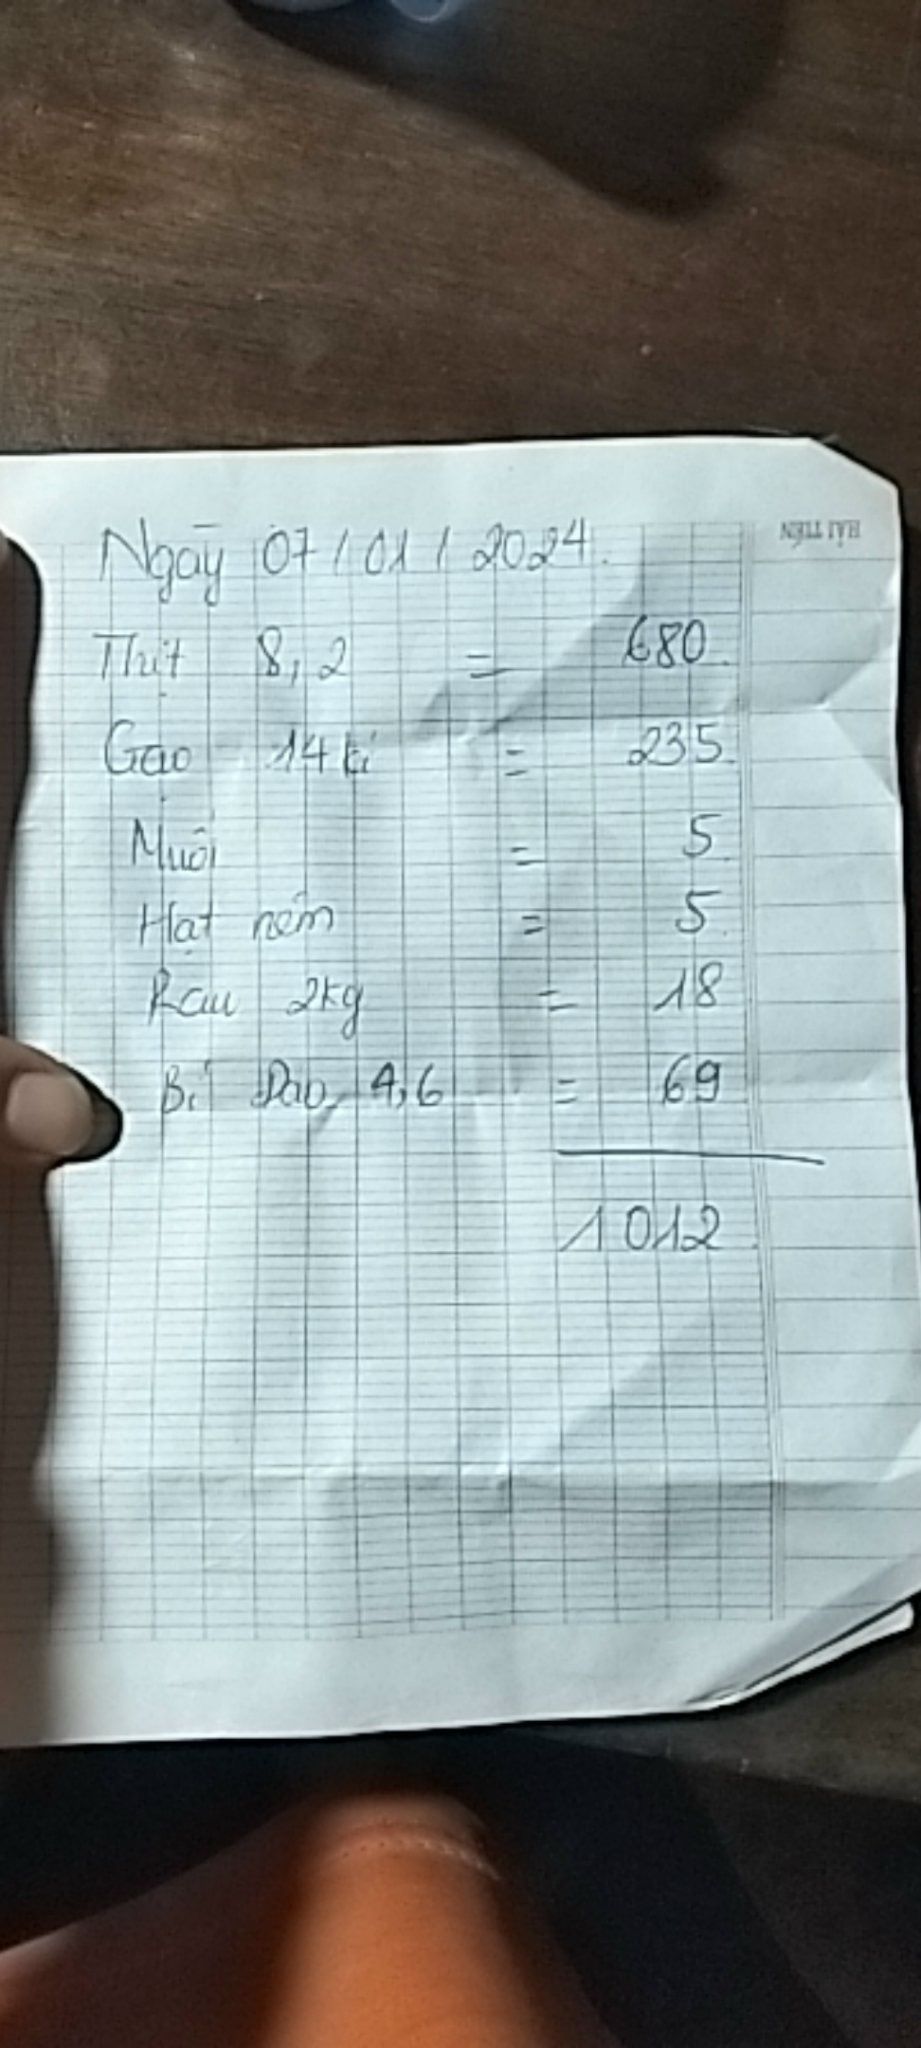 HẢI TIẾN
Ngày 07/01/2024.
Thịt 8,2 = 680.
Gạo 14 kí = 235.
Muối = 5.
Hạt nêm = 5.
Rau 2kg = 18
Bí Đao, 4,6 = 69
1012.